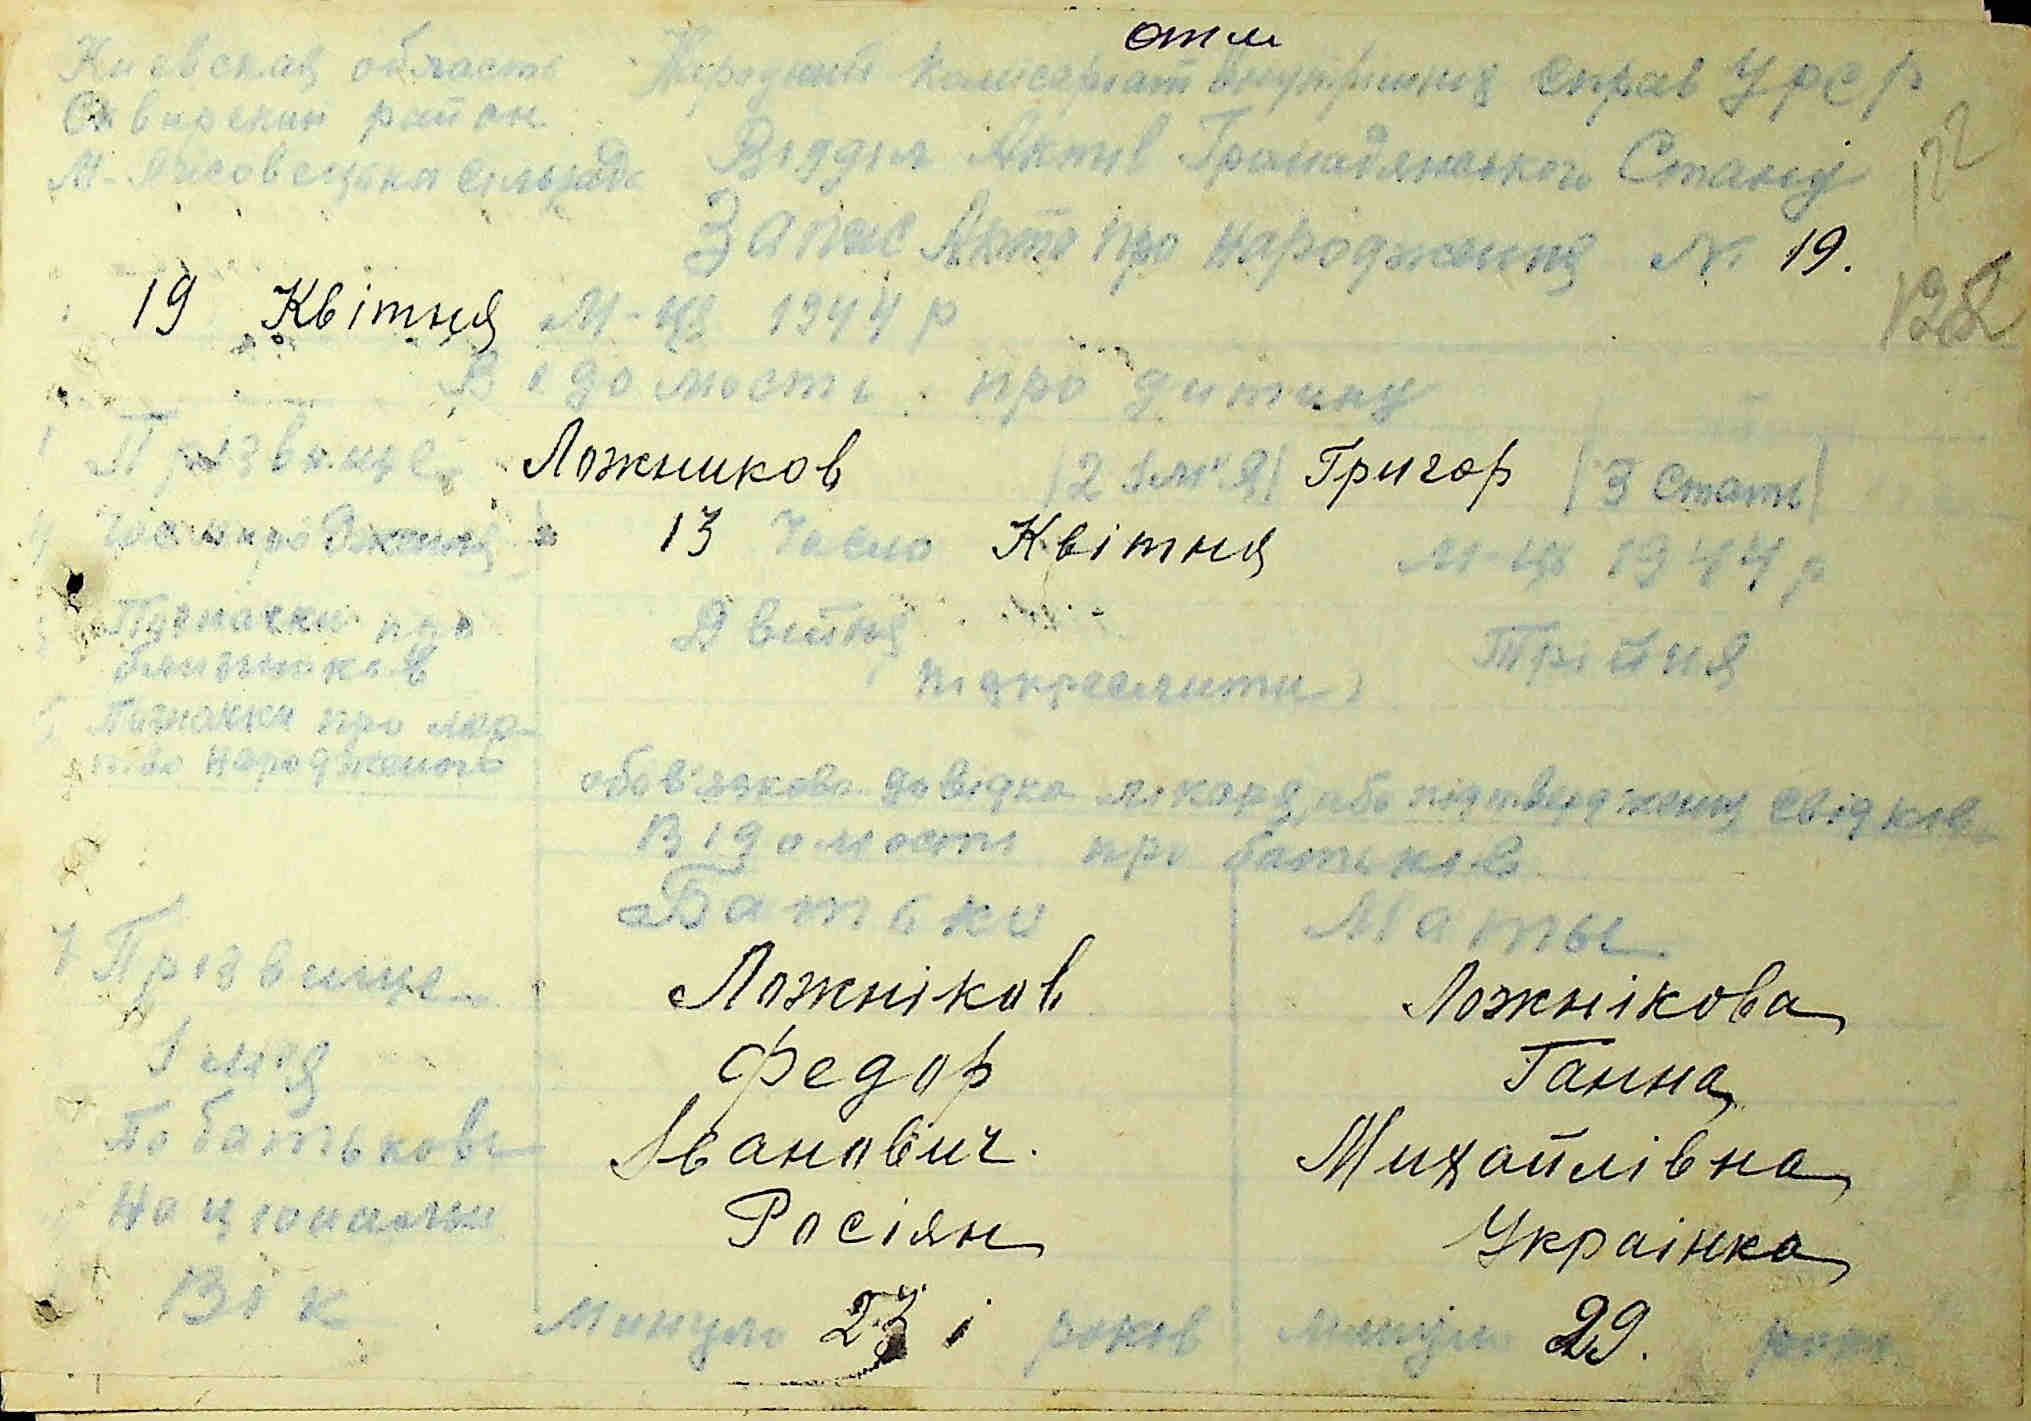 отм
Киевская область Народний Комисаріат Внутрішніх Справ УРСР
Сквирский район
Відділ Актів Громадянського Стану
М-Лисовецька сільрада
Запис Акта про народження № 19.
122
19 Квітня М-ця 1944 р
128
Відомості про дитину
1 Прізвище Ложников 2 Імя Григор 3 Стать
4 Час народження 13 Число Квітня М-ця 1944 р
5 Позначки про близнюків Двійня Трійня
підкреслити
6 Позначки про мер-
тво народженого
обов'язкова довідка лікаря, або підтвердження свідків
Відомості про батьків
Батько Маты
7 Прізвище Ложніков Ложнікова
Імя Федор Ганна
По батькові Іванович. Михайлівна
Націонали Росіян Украінка
Вік Минуло 23 років минуло 29. років